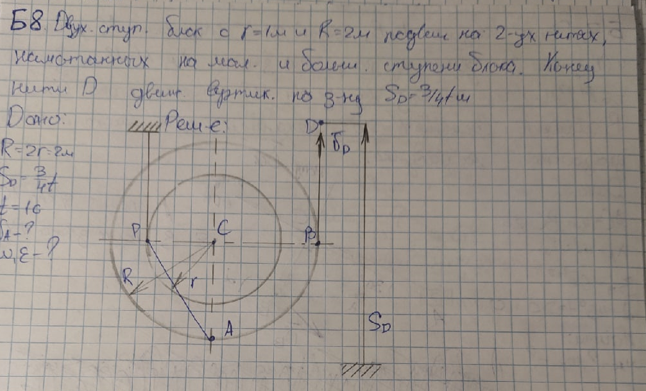 Б8. Двух. ступ. блок с r=1м и R=2м подвеш на 2-ух нитях,
намотанных на мал. и больш. ступени блока. Конец
нити D движ вертик. по з-ну S_D=3/4t м
Дано: Реш-е:
R=2r=2м
S_D=3/4t
t=1с
-?
ω, ε-?
D
P C B
R r
A
S_D